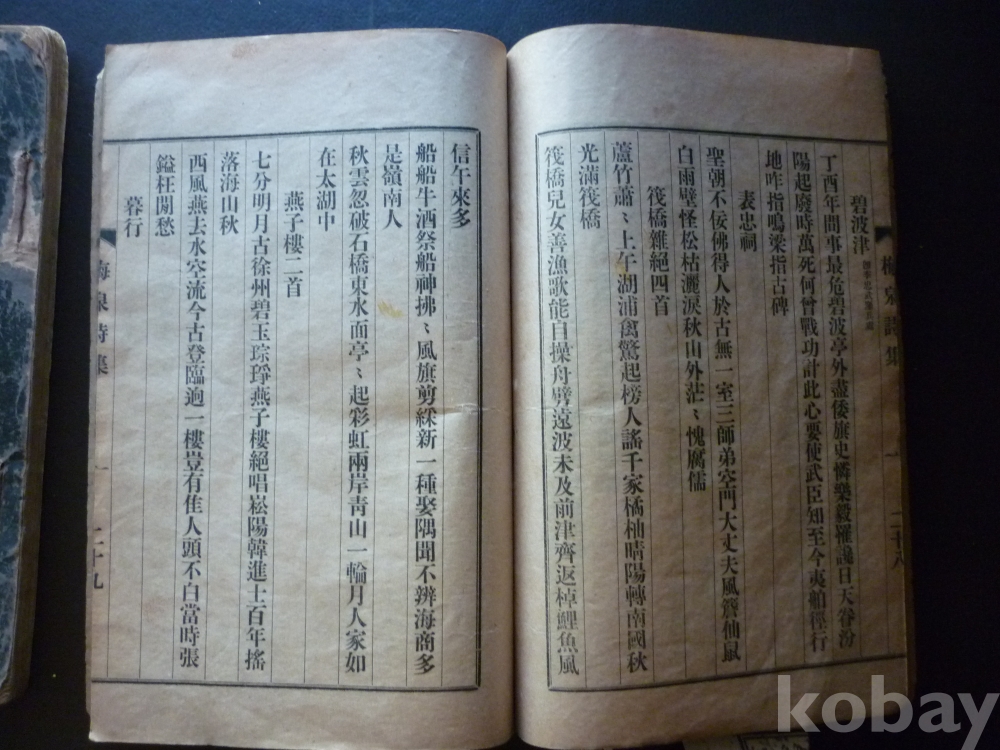 碧波津
丁酉年間事最危碧波亭外盡倭旗史憐樂毅罹讒日天眷汾
陽起廢時萬死何曾戰功計此心要使武臣知至今夷舶徑行
地咋指鳴梁指古碑
表忠祠
聖朝不佞佛得人於古無一室三師弟空門大丈夫風簷仙鼠
白雨壁怪松枯灑淚秋山外茫〻愧腐儒
筏橋雜絕四首
蘆竹蕭〻上午湖浦禽驚起榜人謠千家橘柚晴陽轉南國秋
光滿筏橋
筏橋兒女善漁歌能自操舟劈遠波未及前津齊返棹鯉魚風
梅泉詩集
一
二十八
信午來多
船船牛酒祭船神拂〻風旗剪綵新一種娶隅聞不辨海商多
是嶺南人
秋雲忽破石橋東水面亭〻起彩虹兩岸靑山一輪月人家如
在太湖中
燕子樓二首
七分明月古徐州碧玉琮琤燕子樓絕唱崧陽韓進士百年搖
落海山秋
西風燕去水空流今古登臨逈一樓豈有佳人頭不白當時張
鎰枉閒愁
暮行
梅泉詩集
一
二十九
kobay